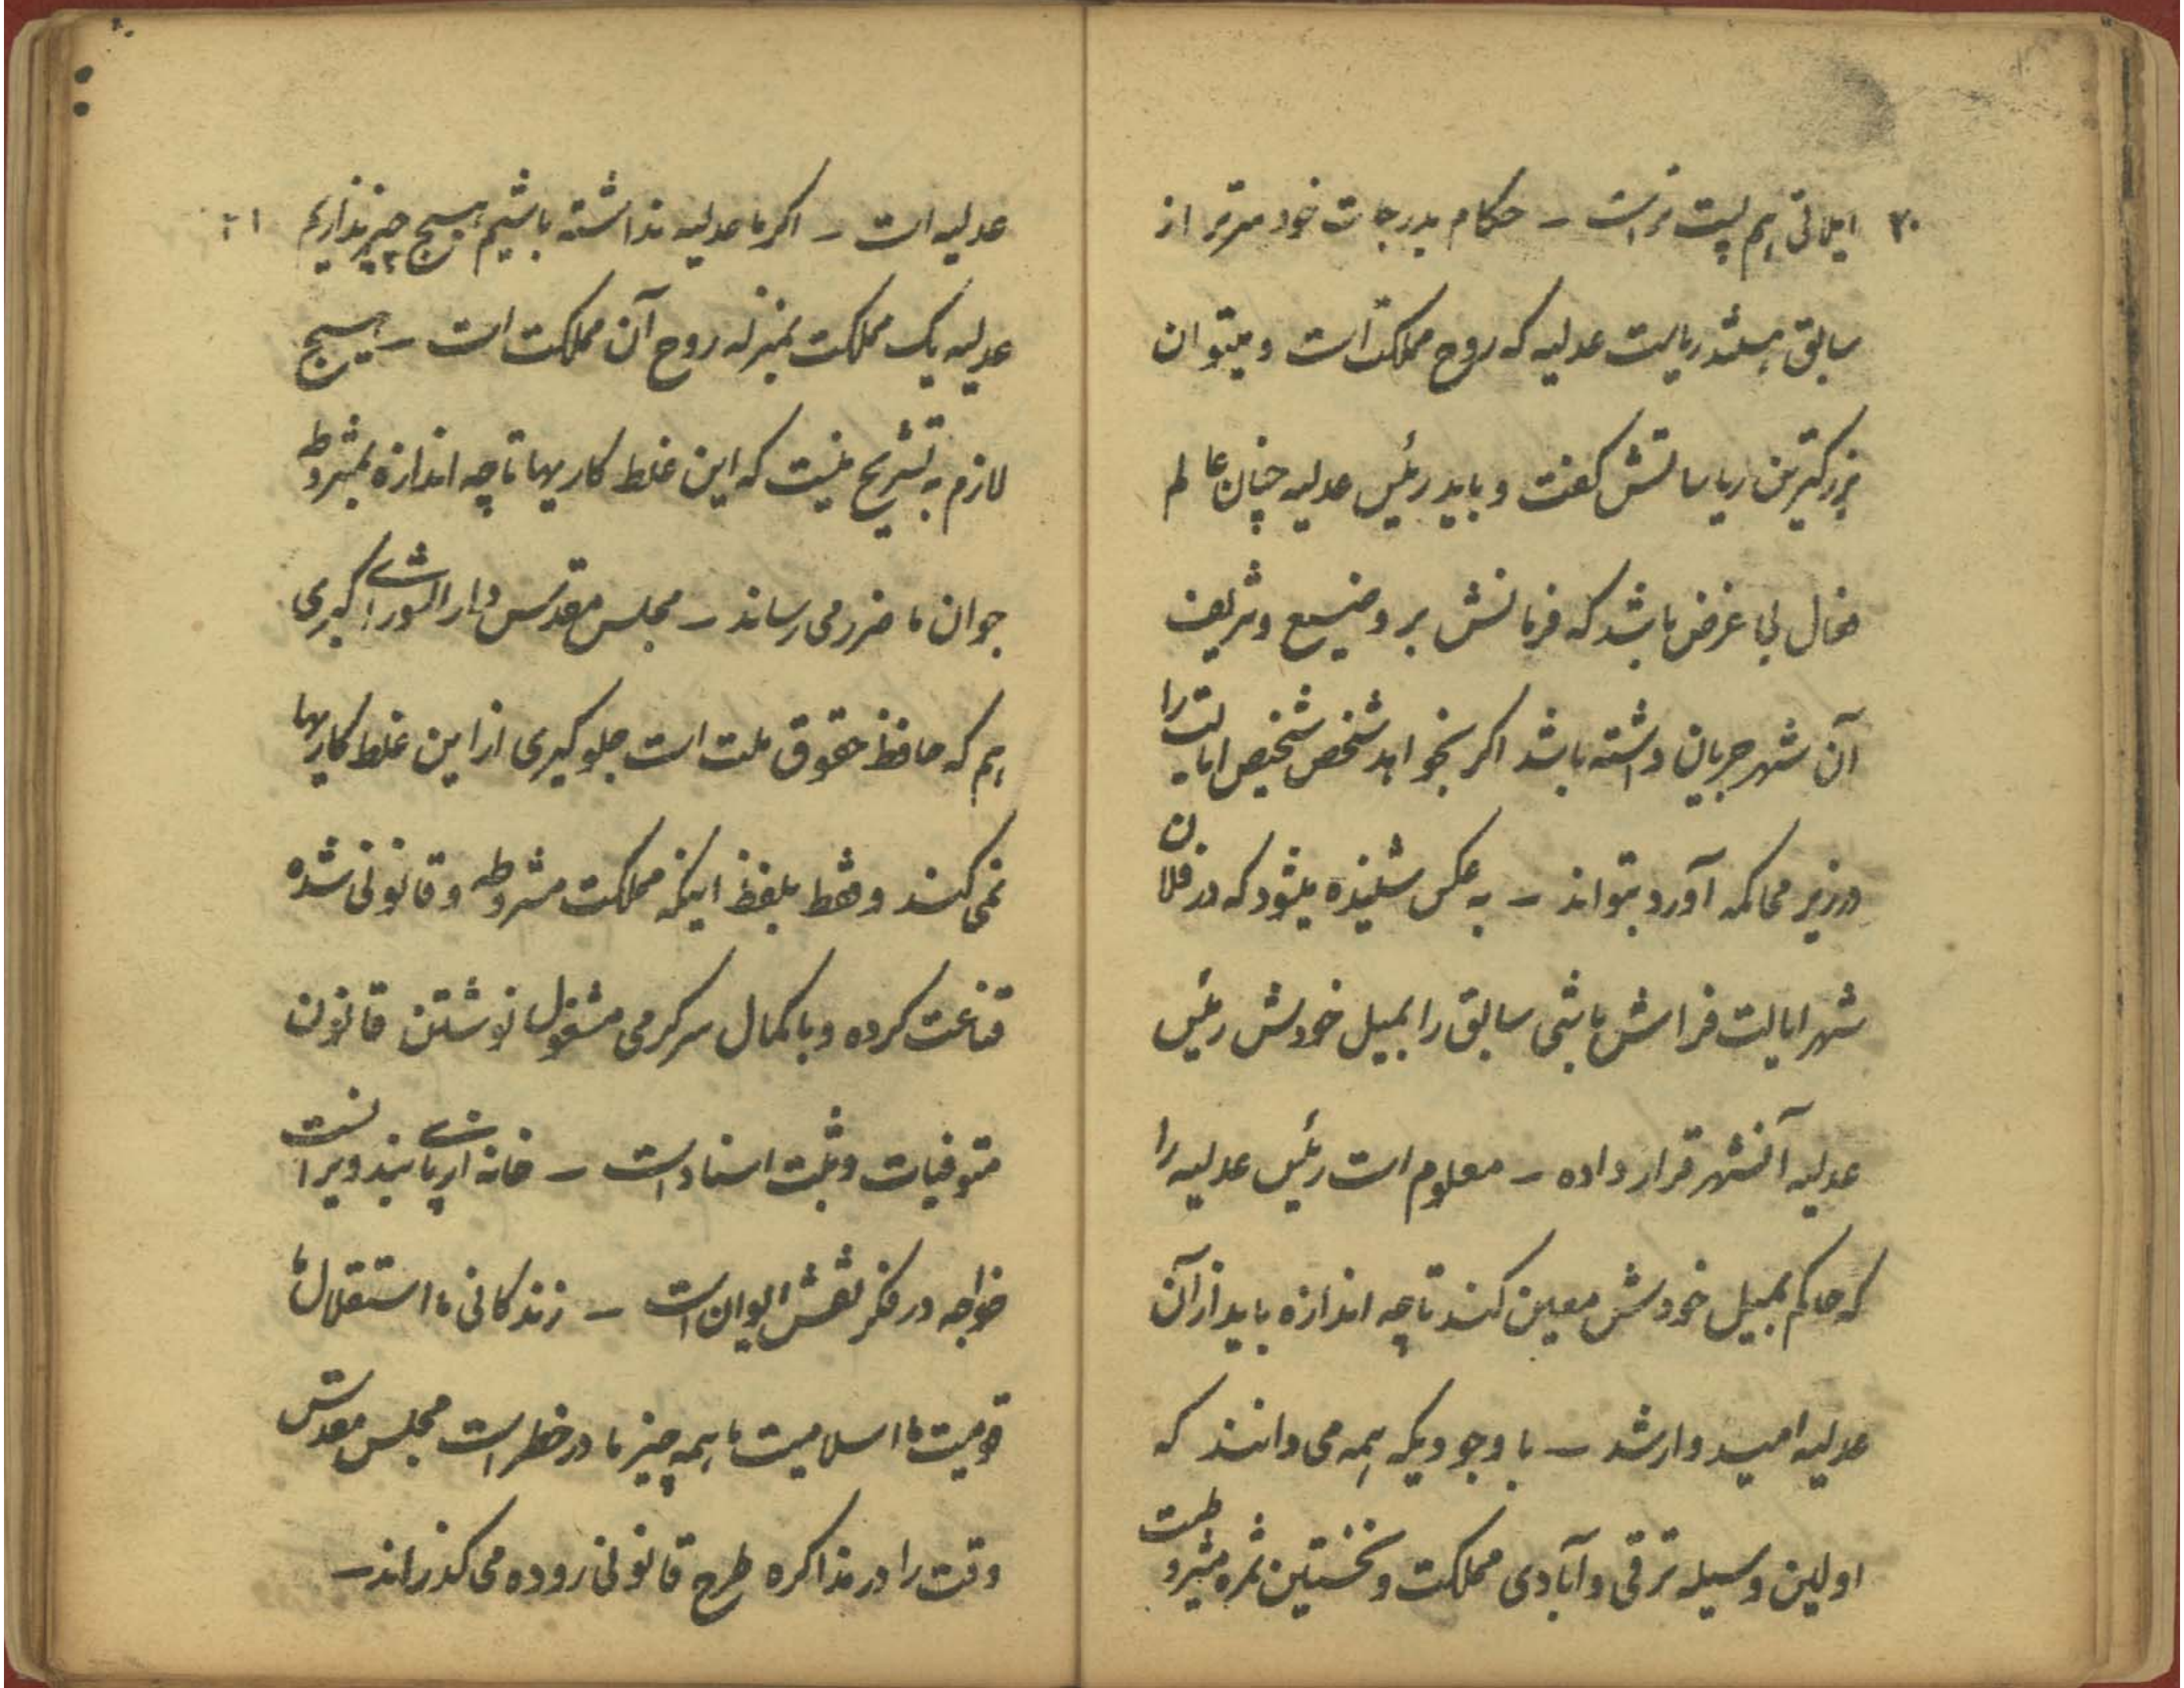 ۲۰ ایلاتی هم پست تر است – حکام بدرجات خودسرتر از
سابق هستند ریاست عدلیه که روح مملکت است و میتوان
بزرکترین ریاساتش کفت و باید رئیس عدلیه چنان عالم
فعال بی غرض باشد که فرمانش بر وضیع و شریف
آن شهر جریان داشته باشد اکر بخواهد شخص شخیص ایالت را
در زیر محاکمه آورد بتواند – به عکس شنیده میشود که در فلان
شهر ایالت فراش باشی سابق را بمیل خودش رئیس
عدلیه آنشهر قرار داده – معلوم است رئیس عدلیه را
که حاکم بمیل خودش معین کند تا چه اندازه باید از آن
عدلیه امیدوار شد – با وجودیکه همه می دانند که
اولین وسیله ترقی و آبادی مملکت و نخستین ثمره مشروطیت
عدلیه است – اکر ما عدلیه نداشته باشیم هیچ چیز نداریم ۲۱
عدلیه یک مملکت بمنزله روح آن مملکت است – هیچ
لازم به تشریح نیست که این غلط کاریها تا چه اندازه بمشروطه
جوان ما ضرر می رساند – مجلس مقدس دار الشورای کبری
هم که حافظ حقوق ملت است جلوکیری از این غلط کاریها
نمی کند و فقط بلفظ اینکه مملکت مشروطه و قانونی شده
قناعت کرده و با کمال سرکرمی مشغول نوشتن قانون
متوفیات و ثبت اسناد است – خانه از پای بند ویرانست
خواجه در فکر نقش ایوان است – زندکانی ما استقلال ما
قومیت ما اسلامیت ما همه چیز ما در خطر است مجلس مقدس
وقت را در مذاکره طرح قانونی روده می کذراند –